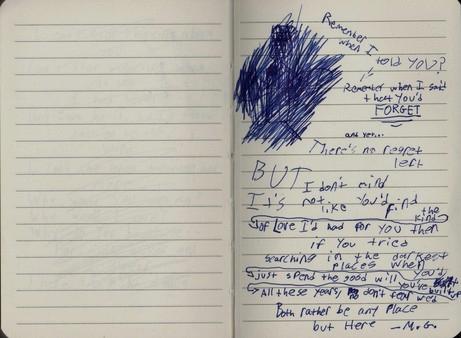 Remember
when I
told YOU?
Remember when I said
that You'd
FORGET
and yet...
There's no regret
left
BUT
I don't mind
It's not like You'd find
the kind
of Love I'd had for you then
if You tried
searching in the darkest
places when
just spend the good will You'd
you've built up
All these years, don't
Both rather be any place
but Here -M.G.